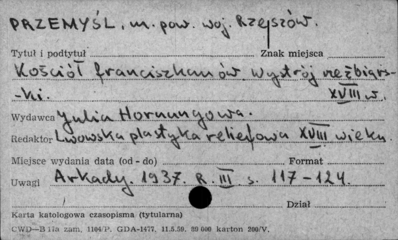 PRZEMYŚL, m. pow. woj. Rzeszów.
Tytuł i podtytuł Znak miejsca
Kościół franciszkanów wystrój rzeźbiars-
-ki. XVIII w.
Wydawca Julia Hornungowa.
Redaktor Lwowska plastyka reliefowa XVIII wieku.
Miejsce wydania data (od - do) Format
Uwagi Arkady. 1937. R. III s. 117-124.
Dział
Karta katalogowa czasopisma (tytularna)
CWD—B zam. 1104/P. GDA-1477, 11.5.59. 80 000 karton 200/V.